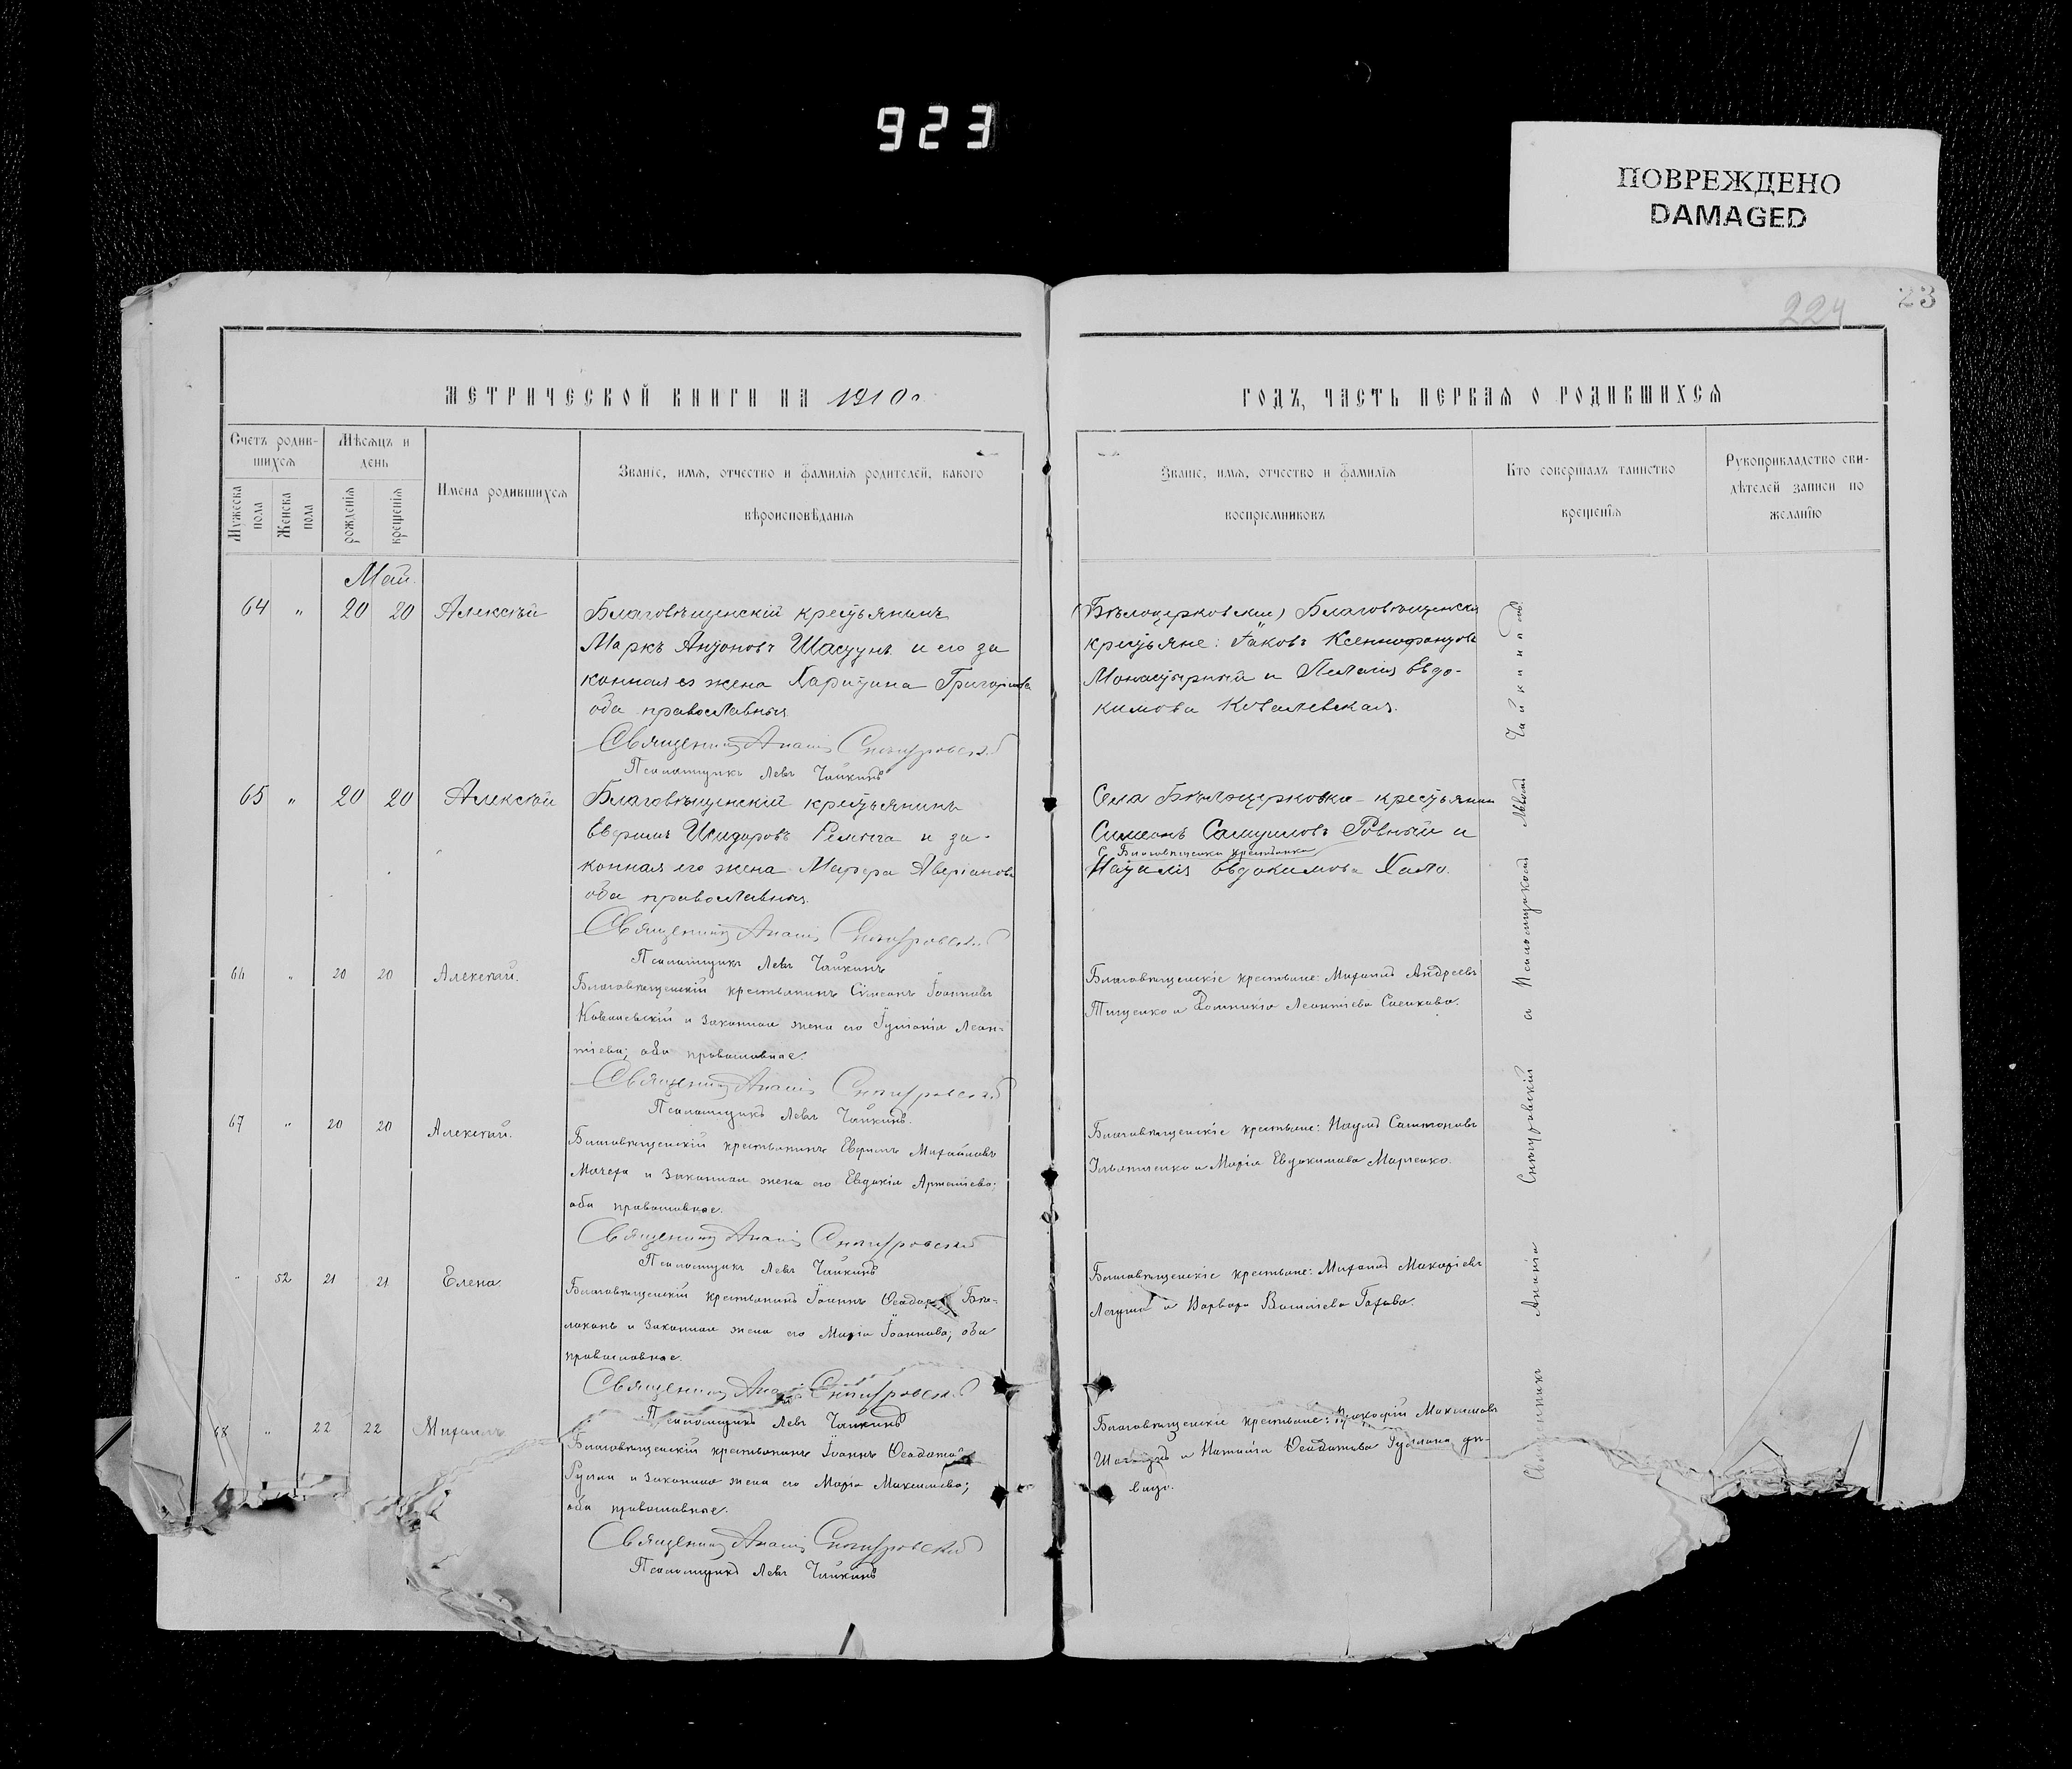 923
ПОВРЕЖДЕНО
DAMAGED
224
23
МЕТРИЧЕСКОЙ КНИГИ НА 1910
ГОДЪ, ЧАСТЬ ПЕРВАЯ О РОДИВШИХСЯ
Счетъ родив-
шихся
Мѣсяцъ и
день
Имена родившихся
Званіе, имя, отчество и фамилія родителей, какого
вѣроисповѣданія
Мужеска
пола
Женска
пола
рожденія
крещенія
Званіе, имя, отчество и фамилія
воспріемниковъ
Кто совершалъ таинство
крещенія
Рукоприкладство сви-
дѣтелей записи по
желанію
Май
64 " 20 20 Алексѣй
Благовѣщенскій крестьянинъ
Маркъ Антоновъ и его за
конная его жена Харитина Григорьева
оба православныя
Священникъ Ананія Снѣгуровскій
Псаломщикъ Левъ Чайкинъ
(Бѣлоцерковскіе) Благовѣщенскіе
крестьяне: Іаковъ Ксенофонтовъ
Монастырный и Пелагія Евдо-
кимова Ковалевская.
65 " 20 20 Алексѣй
Благовѣщенскій крестьянинъ
Ефимъ Исидоровъ и за-
конная его жена Марѳа Аверіанова
оба православныя.
Священникъ Ананія Снѣгуровскій
Псаломщикъ Левъ Чайкинъ
Села Бѣлоцерковка крестьянинъ
Симеонъ Самуиловъ Ровный и
с. Благовѣщенки крестьянка
Наталія Евдокимова
66 " 20 20 Алексѣй.
Благовѣщенскій крестьянинъ Сѵмеонъ Іоанновъ
Ковалевскій и законная жена его Іуліанія Леон-
тіева; оба православные.
Священникъ Ананія Снѣгуровскій
Псаломщикъ Левъ Чайкинъ.
Благовѣщенскіе крестьяне: Михаилъ Андреевъ
Тищенко и Домникія Леонтіева
67 " 20 20 Алексѣй.
Благовѣщенскій крестьянинъ Ефимъ Михайловъ
и законная жена его Евдокія
оба православные.
Священникъ Ананія Снѣгуровскій
Псаломщикъ Левъ Чайкинъ
Благовѣщенскіе крестьяне: Наумъ
и Марія Евдокимова Марченко.
" 52 21 21 Елена.
Благовѣщенскій крестьянинъ Іоаннъ Ѳеодоровъ Бѣ-
локонь и законная жена его Марія Іоаннова; оба
православные.
Священникъ Ананія Снѣгуровскій
Псаломщикъ Левъ Чайкинъ
Благовѣщенскіе крестьяне: Михаилъ Макаріевъ
и Варвара Василіева
68 " 22 22 Михаилъ
Благовѣщенскій крестьянинъ Іоаннъ
и законная жена его Марія Максимова;
оба православные.
Священникъ Ананія Снѣгуровскій
Псаломщикъ Левъ Чайкинъ
Благовѣщенскіе крестьяне: Максимовъ
и Наталія дѣ-
вица.
Священникъ Ананія Снѣгуровскій и Псаломщикъ Левъ Чайкинъ